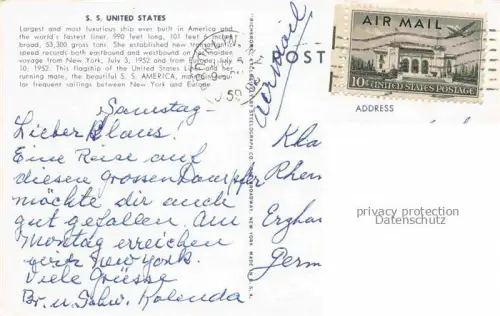 S. S. UNITED STATES
Largest and most luxurious ship ever built in America and
the world's fastest liner. 990 feet long, 101 feet 6 inches
broad, 53,300 gross tons. She established new transatlantic
speed records both eastbound and westbound on her maiden
voyage from New York, July 3, 1952 and from Europe, July
10, 1952. This flagship of the United States Lines and her
running mate, the beautiful S. S. AMERICA, maintain regu-
lar frequent sailings between New York and Europe.
Samstag-
Lieber Klaus!
Eine Reise auf
diesen grossen Dampfer
möchte dir auch
gut gefallen. Am
Montag erreichen
wir New York.
Viele Grüsse
Br. u. Schw. Kolenda
air mail
POST
AIR MAIL
10¢ UNITED STATES POSTAGE
ADDRESS
Kla
Rhein
Germ
privacy protection
Datenschutz